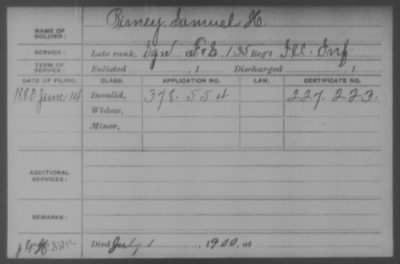 Birney, Samuel H.
NAME OF SOLDIER:
SERVICE: Late rank, F&S, 135 Reg't Ill. Inf.
TERM OF SERVICE: Enlisted , 1 Discharged , 1
DATE OF FILING. CLASS. APPLICATION NO. LAW. CERTIFICATE NO.
1880 June 14 Invalid, 227.223
Widow,
Minor,
ADDITIONAL SERVICES:
REMARKS:
Died July 1, 1900, at